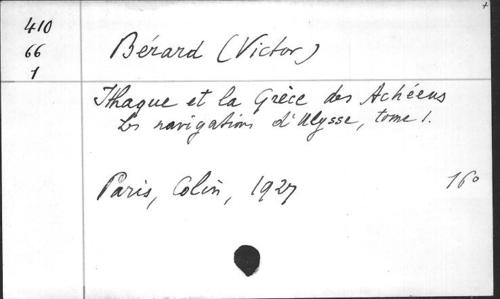 410
66
1
Bérard (Victor)
Ithaque et la Grèce des Achéens
Les navigations d'Ulysse, tome 1.
Paris, Colin, 1927
16°